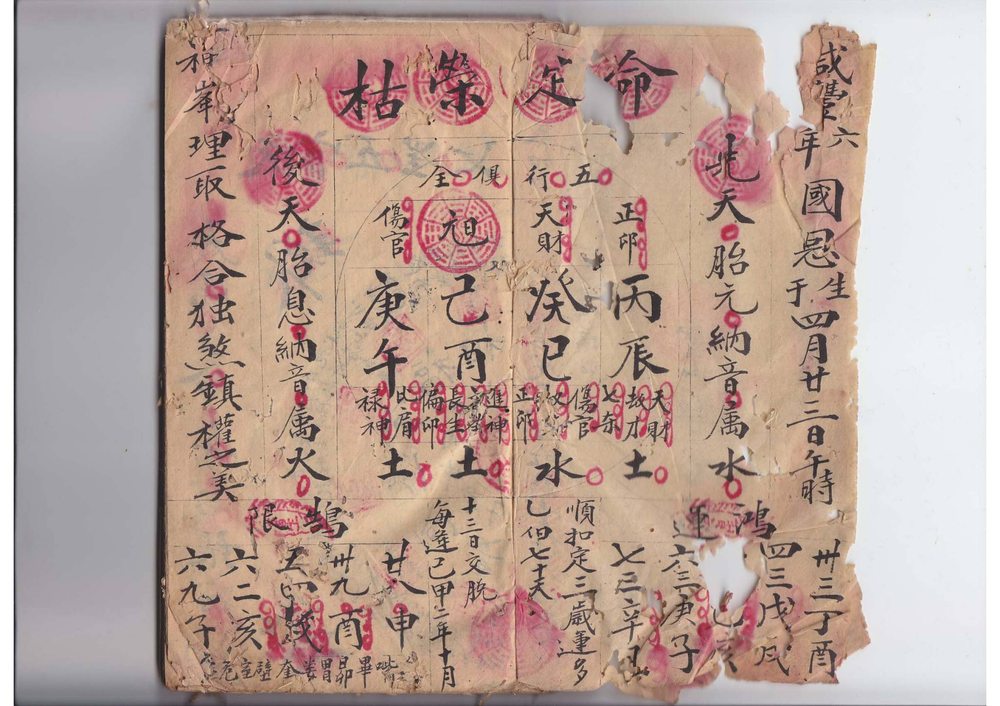 咸豐六年國恩生于四月廿三日午時
命定榮枯
先天胎元納音属水
五行俱全
正印
天財
傷官
丙辰
癸巳
己酉
庚午
天財
七杀
傷官
正印
進神
長生
偏印
比肩
禄神
土
水
土
土
後天胎息納音属火
理取格合独煞鎮權之美
鴻運
卅三丁酉
四三戊戌
己亥
六三庚子
七三辛丑
順扣定三歲運多
乜但七十天
十三日交脫
每逢己甲之年十月
鵠限
廿八申
卅九酉
五四戌
六二亥
六九子
畢昴胃娄奎壁室危